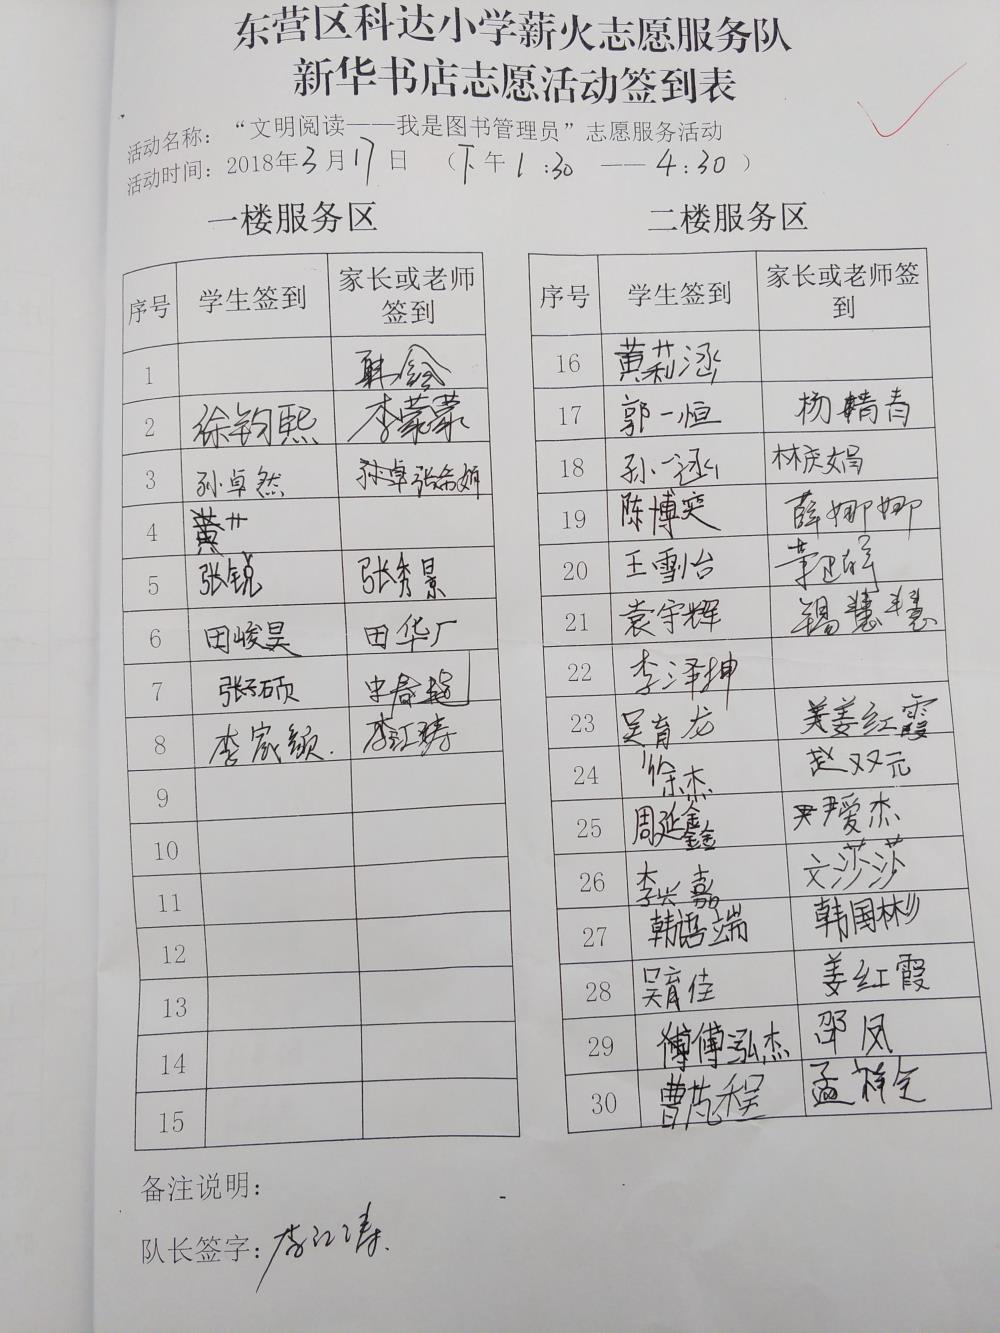 东营区科达小学薪火志愿服务队
新华书店志愿活动签到表
活动名称：“文明阅读——我是图书管理员”志愿服务活动
活动时间：2018年3月17日 （下午1:30 ——4:30）
一楼服务区
序号 学生签到 家长或老师签到
1
2 徐钧熙 李蒙蒙
3 孙卓然
4 黄
5 张锐 张秀景
6 田峻昊 田华厂
7 张硕
8 李家颖 李江涛
9
10
11
12
13
14
15
二楼服务区
序号 学生签到 家长或老师签到
16 黄莉涵
17 郭一恒 杨精青
18 孙一涵 林庆娟
19 陈博奕 薛娜娜
20 王雪怡
21 袁宇辉 慧慧
22 李泽坤
23 吴育龙 姜红霞
24 徐杰 赵双元
25 周延鑫 尹爱杰
26 李兴嘉 文莎莎
27 韩语端 韩国彬
28 吴育佳 姜红霞
29 傅泓杰 邵凤
30 曹芃程 孟祥全
备注说明：
队长签字：李江涛